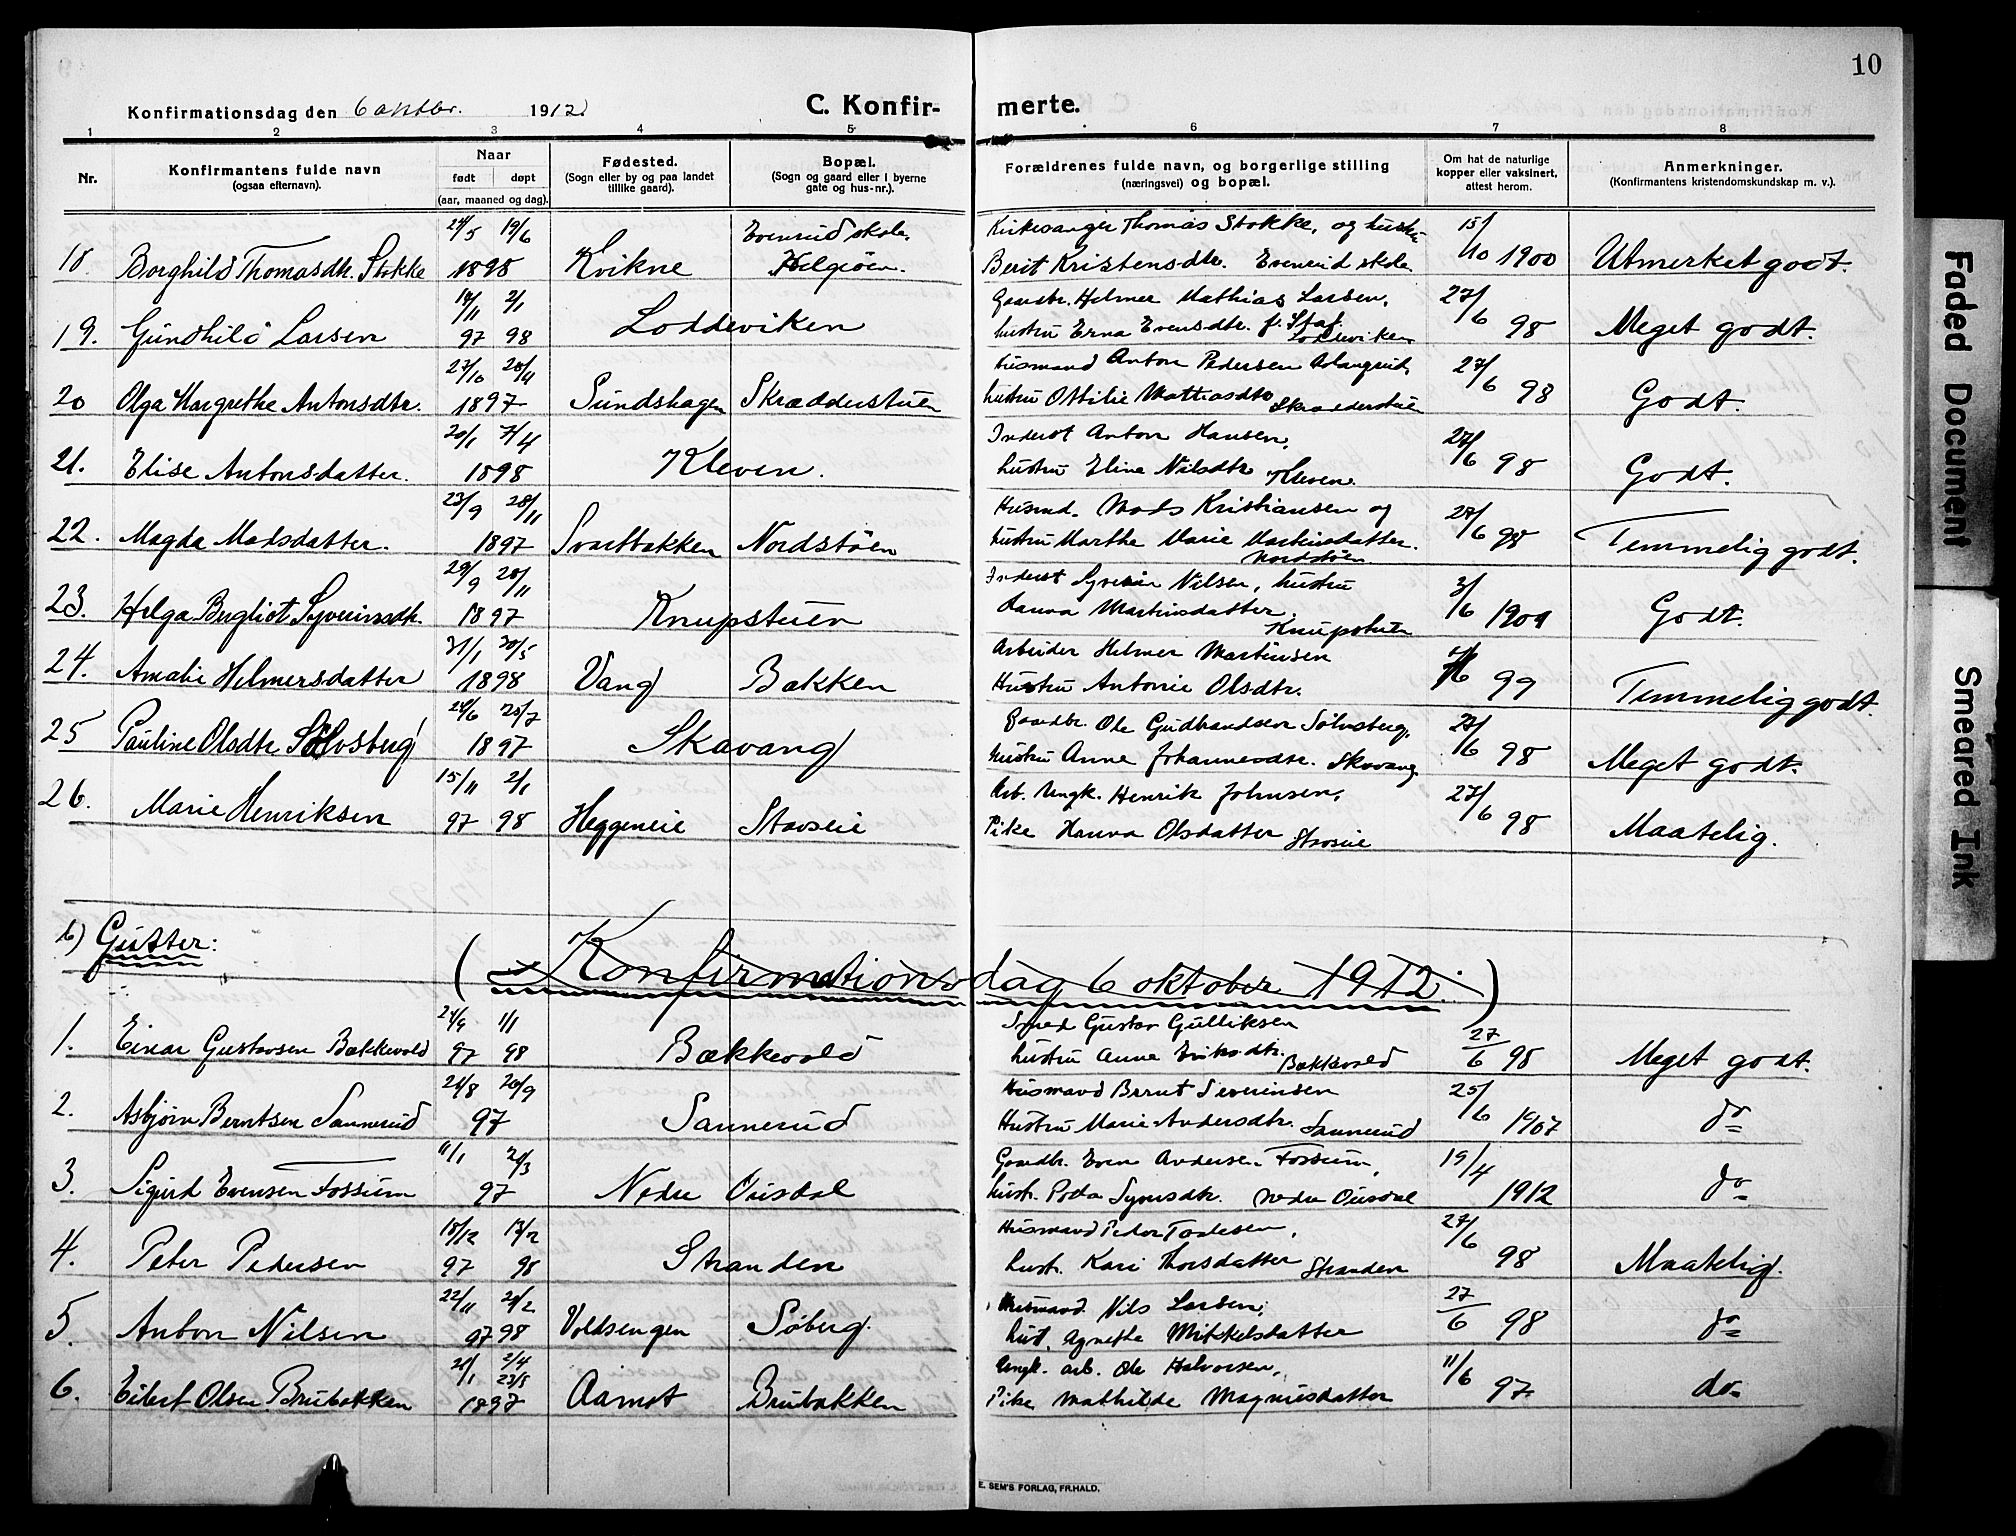 10
Konfirmationsdag den 6 oktbr. 1912
C. Konfir-
merte.
1 2 3 4 5 6 7 8
Nr.
Konfirmantens fulde navn
(ogsaa efternavn).
Naar
født døpt
(aar, maaned og dag).
Fødested.
(Sogn eller by og paa landet
tillike gaard).
Bopæl.
(Sogn og gaard eller i byerne
gate og hus-nr.).
Forældrenes fulde navn, og borgerlige stilling
(næringsvei) og bopæl.
Om hat de naturlige
kopper eller vaksinert,
attest herom.
Anmerkninger.
(Konfirmantens kristendomskundskap m. v.).
24/5 19/6 Evenrud skole, Kirkesanger Thomas Stokke, og hustru 15/
18. Borghild Thomasdtr. Stokke 1898 Kvikne Helgøen. Berit Kristensdtr. Evenrud skole 10 1900 Utmerket godt.
14/11 2/1 Gaardbr. Helmer Mathias Larsen, 27/6
19. Gundhild Larsen 97 98 Loddeviken hustru Erna Evensdtr. f. Staf. Loddeviken 98 Meget godt.
27/10 28/11 Husmand Anton Pedersen Alangrud, 27/6
20 Olga Margrethe Antonsdtr. 1897 Sundshagen Skrædderstuen hustru Ottilie Mattiasdtr Skrædderstuen 98 Godt.
20/1 7/4 Inderst Anton Hansen, 27/6
21. Elise Antonsdatter. 1898 Kleven. hustru Eline Nilsdtr Kleven. 98 Godt.
23/9 28/11 Husmd. Mads Kristiansen og 27/6
22. Magda Madsdatter. 1897 Svartbakken Nordstøen hustru Marthe Marie Martinsdatter. Nordstøen 98 Temmelig godt.
29/9 28/11 Inderst Syverin Nilsen, hustru 3/6
23. Helga Bergliot Syverinsdtr. 1897 Knupstuen Hanna Martinsdatter. Knupstuen 1901 Godt.
31/1 30/5 Arbeider Helmer Martinsen
24. Amalie Helmersdatter 1898 Vang Bakken Hustru Antonie Olsdtr. 99 Temmelig godt.
24/6 25/7 Gaardbr. Ole Gudbrandsen Sølvsberg, 27/6
25 Pauline Olsdtr. Sølvsberg 1897 Skavang hustru Anne Johannesdtr. Skavang 98 Meget godt.
15/11 2/1 Arb. Ungk. Henrik Johnsen, 27/6
26. Marie Henriksen 97 98 Heggeneie Stavseie Pike Hanna Olsdatter Stavseie 98 Maatelig.
b) Gutter:
(Konfirmationsdag 6 oktober 1912.)
24/9 1/1 Smed Gustav Gulliksen 27/6
1. Einar Gustavsen Bækkevold 97 98 Bækkevold hustru Anne Eriksdtr. Bækkevold 98 Meget godt.
24/8 20/9 Husmand Bernt Severinsen 25/6
2. Asbjørn Berntsen Sannerud 97 Sannerud Hustru Marie Andersdtr. Sannerud 1907 do
11/1 21/3 Gaardbr. Even Andersen Fossum, 19/4
3. Sigurd Evensen Fossum 97 Nedre Ousdal hustr. Poda Syversdtr. nedre Ousdal 1912 do
18/12 13/2 Husmand Peder Tordesen, 27/6
4. Peter Pedersen 97 98 Stranden hustr. Kari Thorsdatter Stranden 98 Maatelig.
22/11 20/2 Husmand Nils Larsen, 27/6
5. Anton Nilsen 97 98 Voldsengen Søberg. hust. Agnethe Mikkelsdatter 98 do
21/1 2/4 23/5 Ungk. arb. Ole Halvorsen, 11/6
6. Eilert Olsen Brubakken 1897 Aamot Brubakken Pike Mathilde Magnusdatter 97 do
E. SEM'S FORLAG, FR.HALD.
Faded Document
Smeared Ink